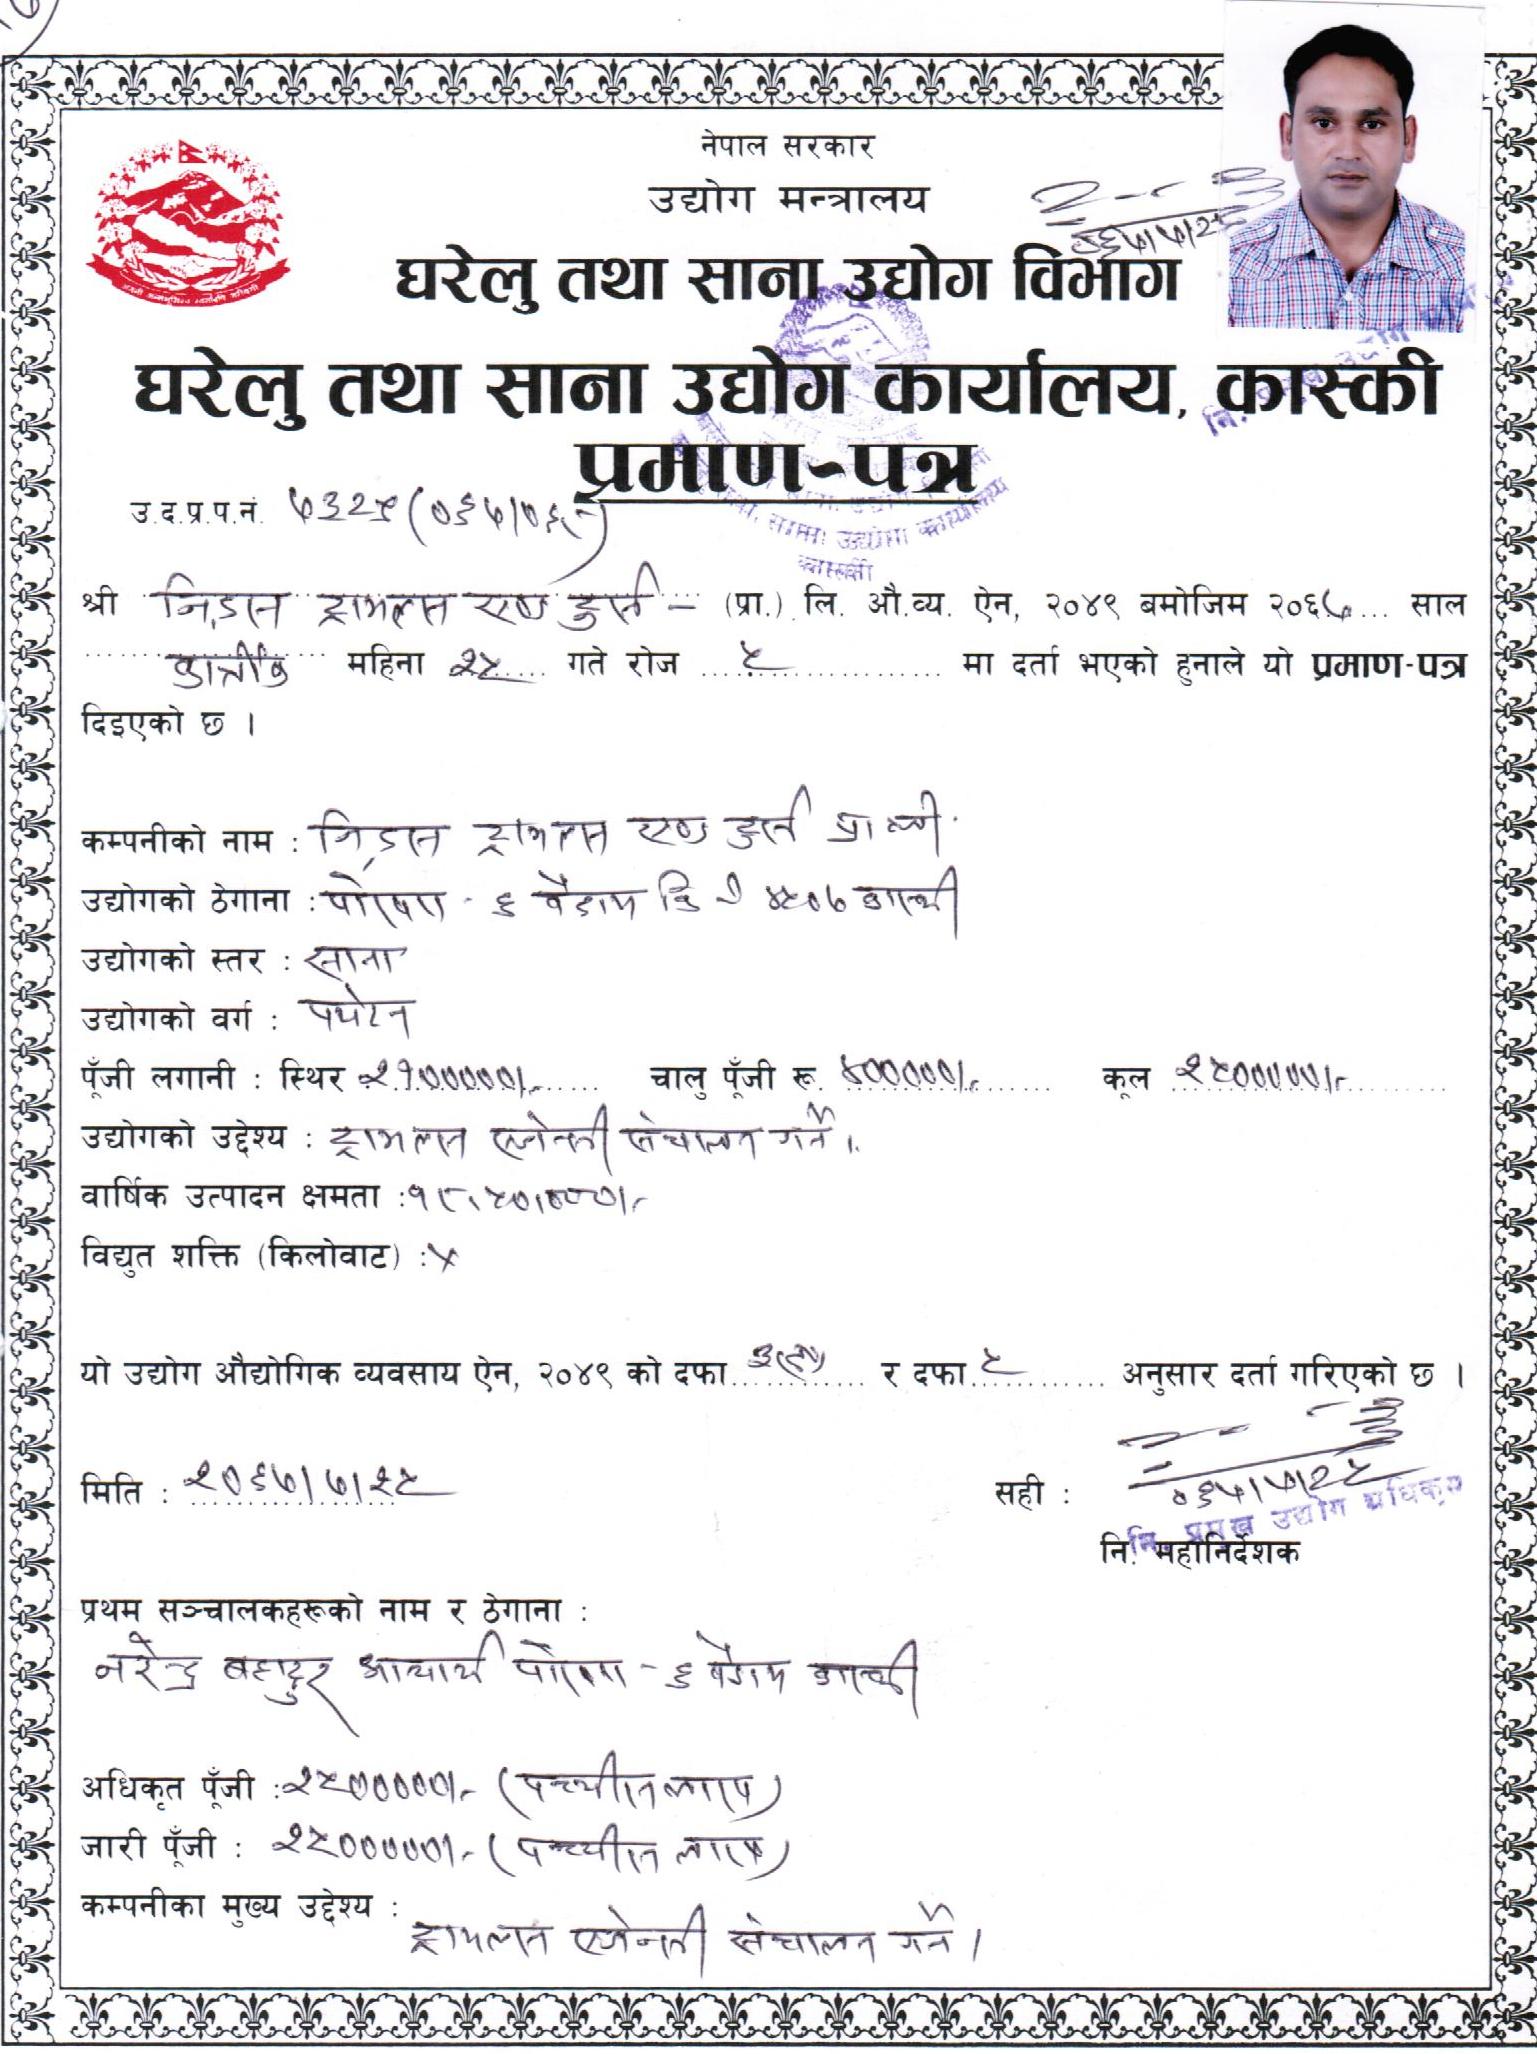 नेपाल सरकार
उद्योग मन्त्रालय
घरेलु तथा साना उद्योग विभाग
घरेलु तथा साना उद्योग कार्यालय, कास्की
प्रमाण-पत्र
उ.द.प्र.प.नं. ५३२५ (०६७।०६८)
श्री ट्राभल्स एण्ड टुर्स - (प्रा.) लि. औ.व्य. ऐन, २०४९ बमोजिम २०६७ साल
कार्तीक महिना २५ गते रोज ५ मा दर्ता भएको हुनाले यो प्रमाण-पत्र
दिइएको छ ।
कम्पनीको नाम : ट्राभल्स एण्ड टुर्स प्रा ली
उद्योगको ठेगाना : पोखरा - ६ वैदाम कास्की
उद्योगको स्तर : साना
उद्योगको वर्ग : पर्यटन
पूँजी लगानी : स्थिर २१०००००।- चालु पूँजी रू. ४०००००।- कूल २५०००००।-
उद्योगको उद्देश्य : ट्राभल्स एजेन्सी संचालन गर्ने ।
वार्षिक उत्पादन क्षमता :
विद्युत शक्ति (किलोवाट) :
यो उद्योग औद्योगिक व्यवसाय ऐन, २०४९ को दफा र दफा ९ अनुसार दर्ता गरिएको छ ।
मिति : २०६७।७।२५
सही : ०६७।७।२५
नि. प्रमुख उद्योग अधिकृत
नि. महानिर्देशक
प्रथम सञ्चालकहरूको नाम र ठेगाना :
नरेन्द्र बहादुर आचार्य पोखरा - ६ वैदाम कास्की
अधिकृत पूँजी : २५०००००।- (पच्चीस लाख)
जारी पूँजी : २५०००००।- (पच्चीस लाख)
कम्पनीका मुख्य उद्देश्य :
ट्राभल्स एजेन्सी संचालन गर्ने ।